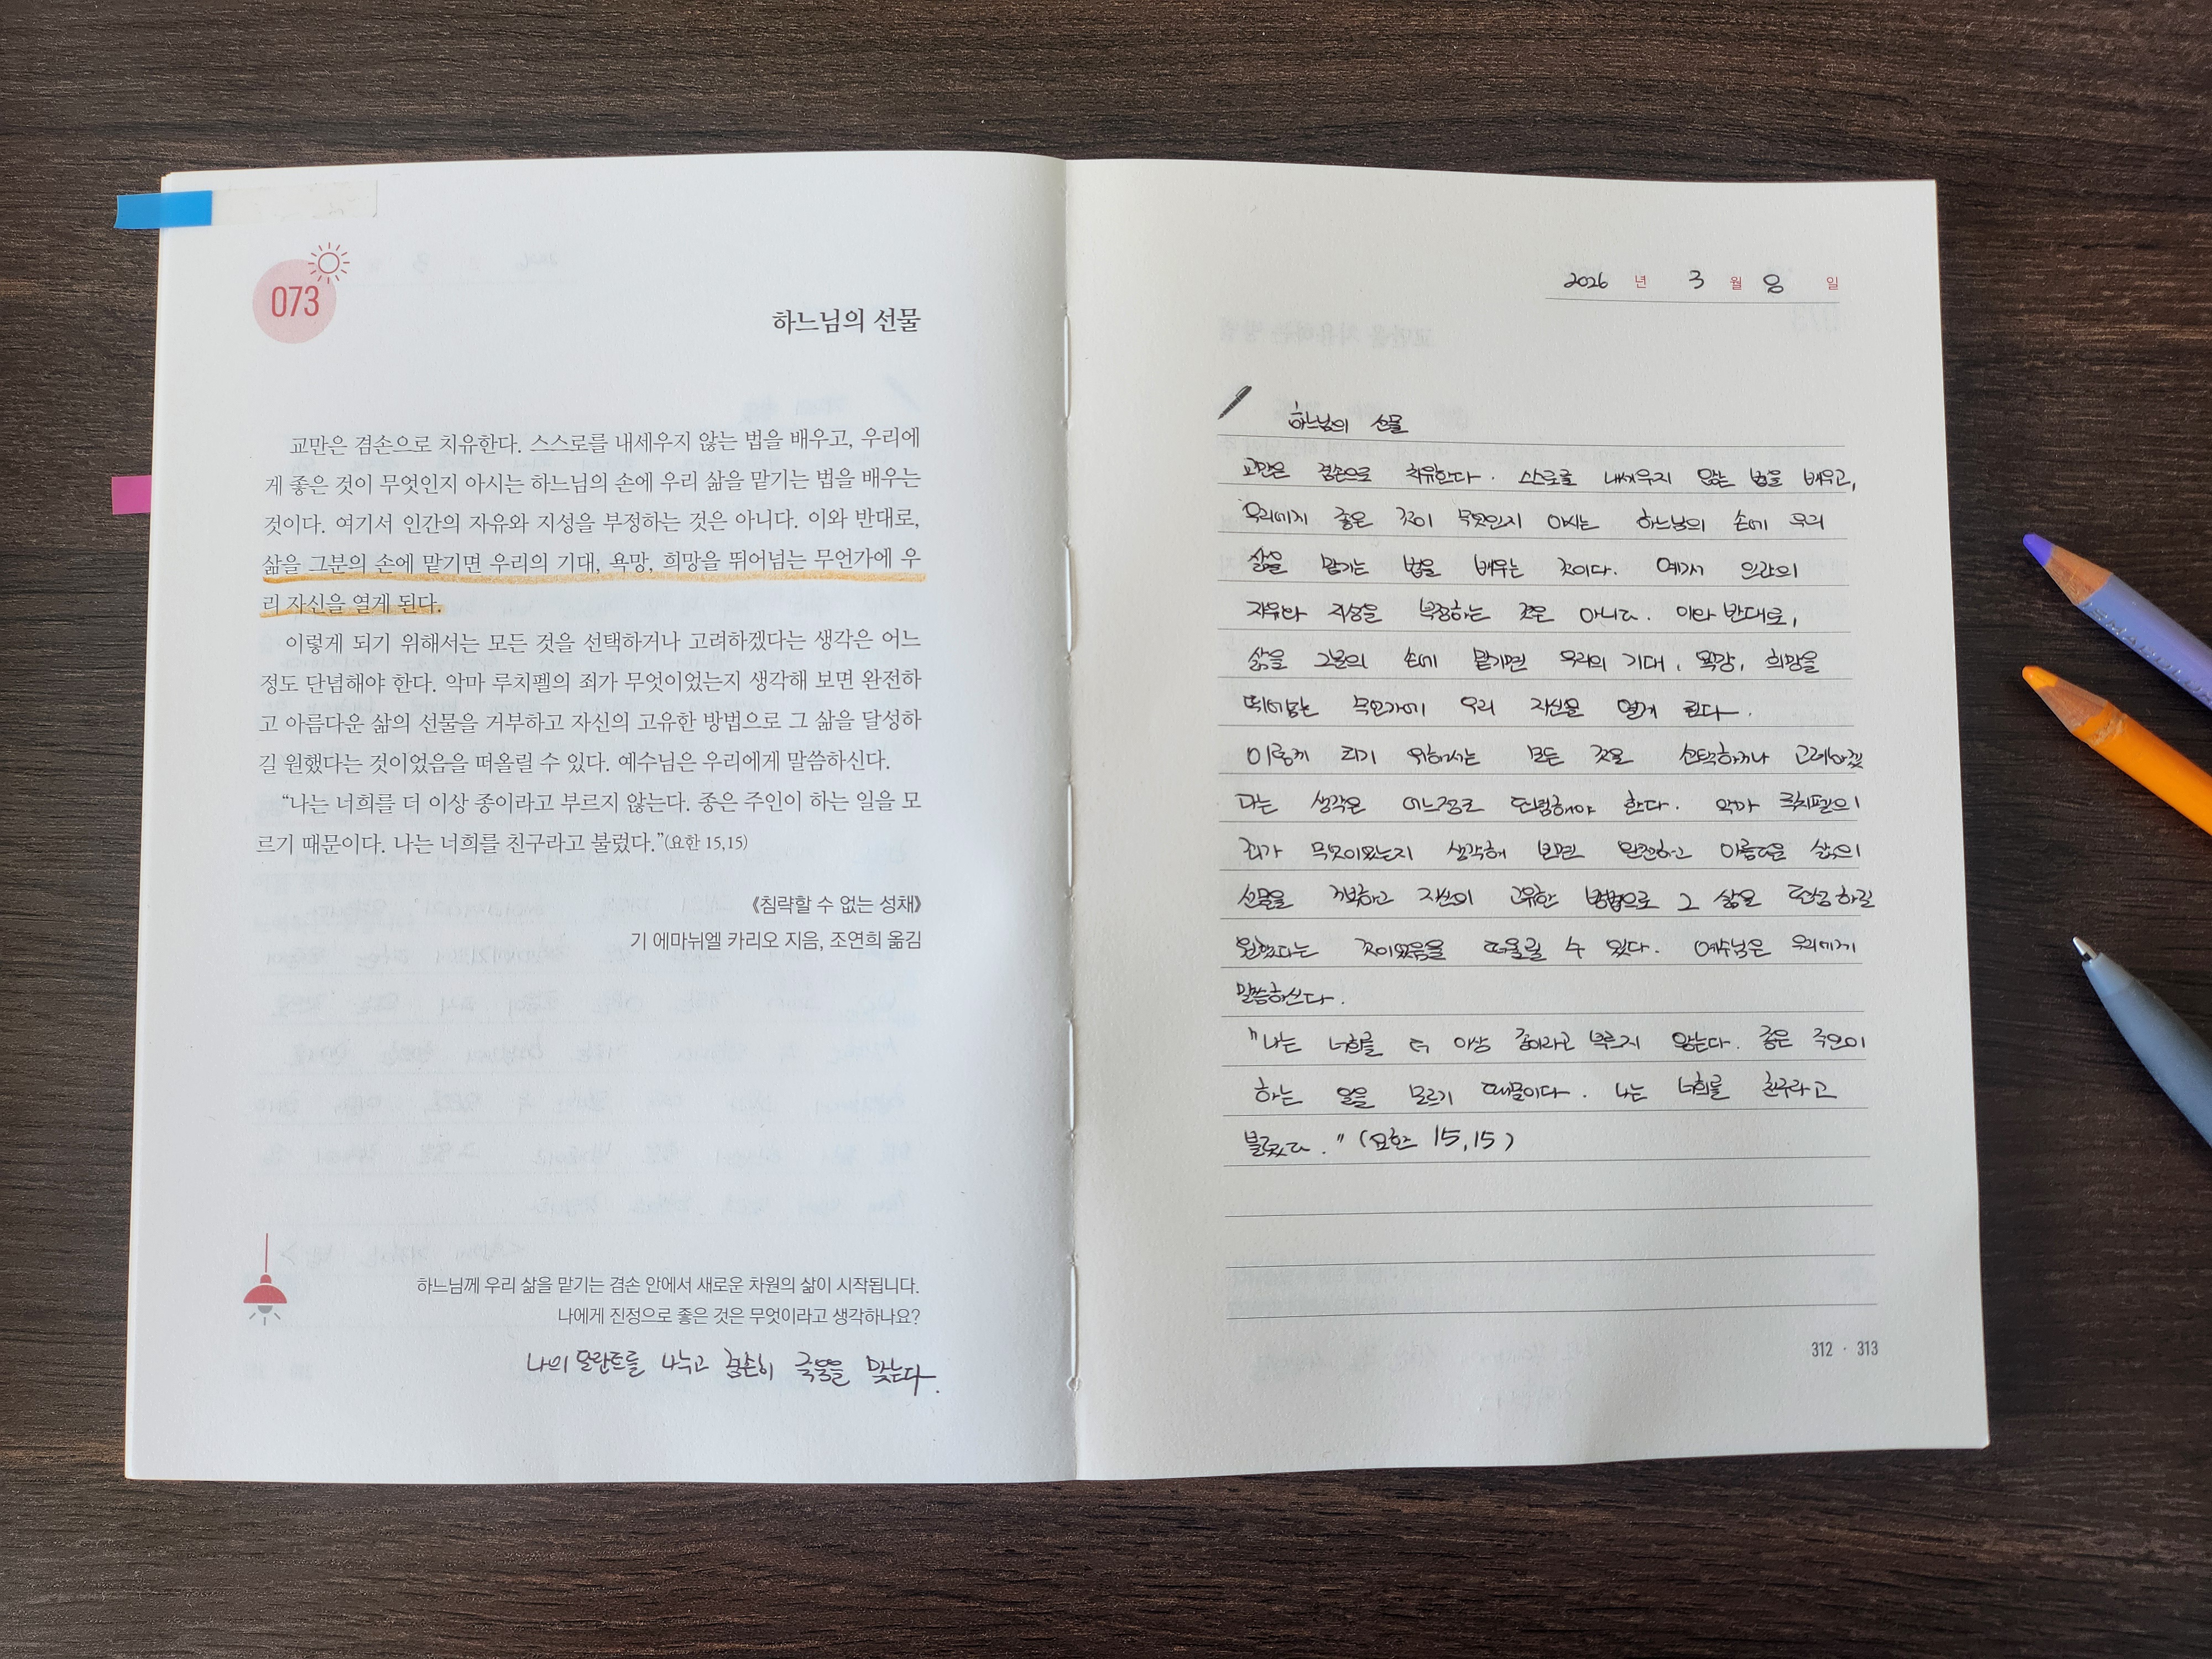 073
하느님의 선물
교만은 겸손으로 치유한다. 스스로를 내세우지 않는 법을 배우고, 우리에
게 좋은 것이 무엇인지 아시는 하느님의 손에 우리 삶을 맡기는 법을 배우는
것이다. 여기서 인간의 자유와 지성을 부정하는 것은 아니다. 이와 반대로,
삶을 그분의 손에 맡기면 우리의 기대, 욕망, 희망을 뛰어넘는 무언가에 우
리 자신을 열게 된다.
이렇게 되기 위해서는 모든 것을 선택하거나 고려하겠다는 생각은 어느
정도 단념해야 한다. 악마 루치펠의 죄가 무엇이었는지 생각해 보면 완전하
고 아름다운 삶의 선물을 거부하고 자신의 고유한 방법으로 그 삶을 달성하
길 원했다는 것이었음을 떠올릴 수 있다. 예수님은 우리에게 말씀하신다.
“나는 너희를 더 이상 종이라고 부르지 않는다. 종은 주인이 하는 일을 모
르기 때문이다. 나는 너희를 친구라고 불렀다.”(요한 15,15)
《침략할 수 없는 성채》
기 에마뉘엘 카리오 지음, 조연희 옮김
하느님께 우리 삶을 맡기는 겸손 안에서 새로운 차원의 삶이 시작됩니다.
나에게 진정으로 좋은 것은 무엇이라고 생각하나요?
나의 달란트를 나누고 겸손히 죽음을 맞는다.
2026 년 3 월 8 일
하느님의 선물
교만은 겸손으로 치유한다. 스스로를 내세우지 않는 법을 배우고,
우리에게 좋은 것이 무엇인지 아시는 하느님의 손에 우리
삶을 맡기는 법을 배우는 것이다. 여기서 인간의
자유와 지성을 부정하는 것은 아니다. 이와 반대로,
삶을 그분의 손에 맡기면 우리의 기대, 욕망, 희망을
뛰어넘는 무언가에 우리 자신을 열게 된다.
이렇게 되기 위해서는 모든 것을 선택하거나 고려하겠
다는 생각은 어느정도 단념해야 한다. 악마 루치펠의
죄가 무엇이었는지 생각해 보면 완전하고 아름다운 삶의
선물을 거부하고 자신의 고유한 방법으로 그 삶을 달성하길
원했다는 것이었음을 떠올릴 수 있다. 예수님은 우리에게
말씀하신다.
"나는 너희를 더 이상 종이라고 부르지 않는다. 종은 주인이
하는 일을 모르기 때문이다. 나는 너희를 친구라고
불렀다." (요한 15,15)
312 · 313